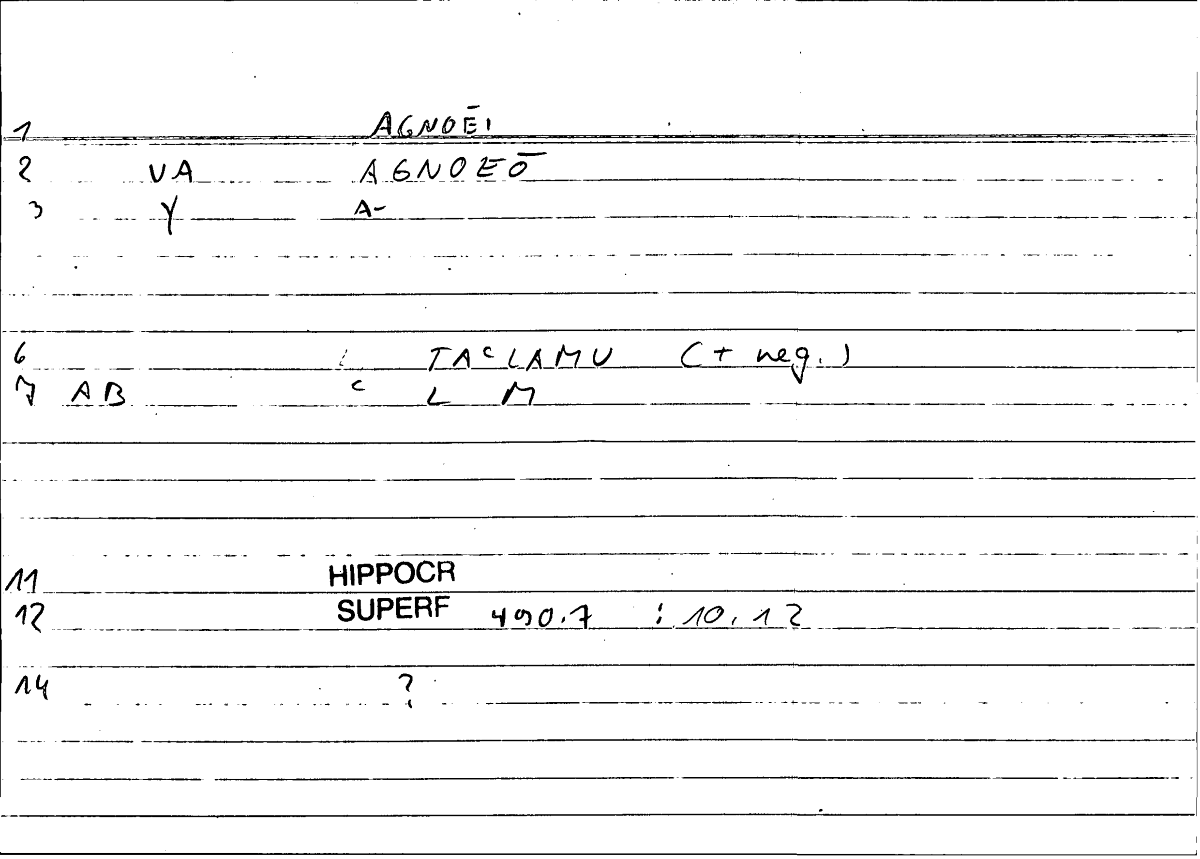 1 AGNOĒI
2 VA AGNOEŌ
3 γ A-
6 TAᶜLAMU (+ neg.)
7 AB ᶜ L M
11 HIPPOCR
12 SUPERF 490.7 : 10.12
14 ?